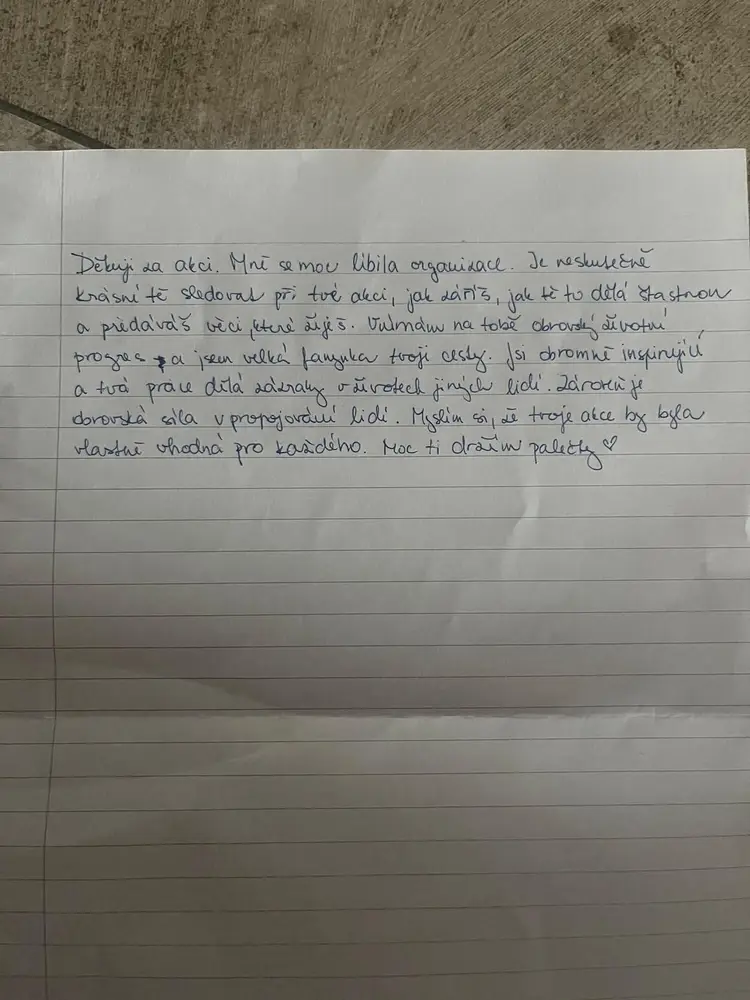 Děkuji za akci. Mně se moc líbila organizace. Je neskutečně
krásné tě sledovat při tvé akci, jak záříš, jak tě to dělá šťastnou
a předáváš věci, které žiješ. Vnímám na tobě obrovský životní
progres a jsem velká fanynka tvojí cesty. Jsi ohromně inspirující
a tvá práce dělá zázraky v životech jiných lidí. Zároveň je
obrovská síla v propojování lidí. Myslím si, že tvoje akce by byla
vlastně vhodná pro každého. Moc ti držím palečky ♡